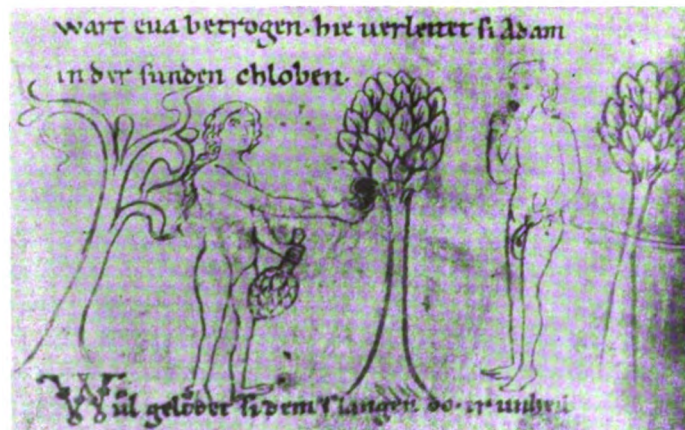 wart eua betrogen. hie uerleitet si Adam
in der sunden chloben.
Wůl gelǒbet si dem slangen do. ir unheil